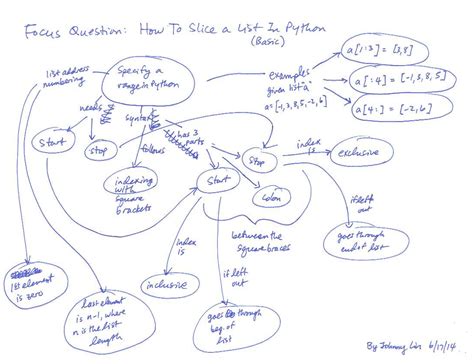 Focus Question: How To Slice a List In Python
(Basic)
list address
numbering
Specify a
range in Python
examples
given list "a"
a=[-1,3,8,5,-2,6]
a[1:3] = [3,8]
a[:4] = [-1,3,8,5]
a[4:] = [-2,6]
needs
syntax
has 3
parts
Start
stop
follows
indexing
with
square
brackets
Start
Stop
colon
index
is
exclusive
index
is
inclusive
between the
square braces
if left
out
if left
out
goes through
end of list
goes through
beg. of
list
1st element
is zero
last element
is n-1, where
n is the list
length
By Johnny Lin 6/17/14